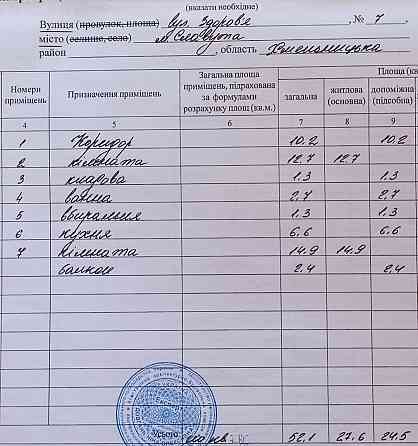 (вказати необхідне)
Вулиця (провулок, площа) вул. Здоров'я , № 7 ,
місто (селище, село) м Славута
район , область Хмельницька
Номери приміщень Призначення приміщень Загальна площа приміщень, підрахована за формулами розрахунку площ (кв.м.) Площа (кв
загальна житлова (основна) допоміжна (підсобна)
4 5 6 7 8 9
1 Коридор 10.2 10.2
2 кімната 12.7 12.7
3 кладова 1.3 1.3
4 ванна 2.7 2.7
5 вбиральня 1.3 1.3
6 кухня 6.6 6.6
7 кімната 14.9 14.9
балкон 2.4 2.4
Усього 52,1 27.6 24.5